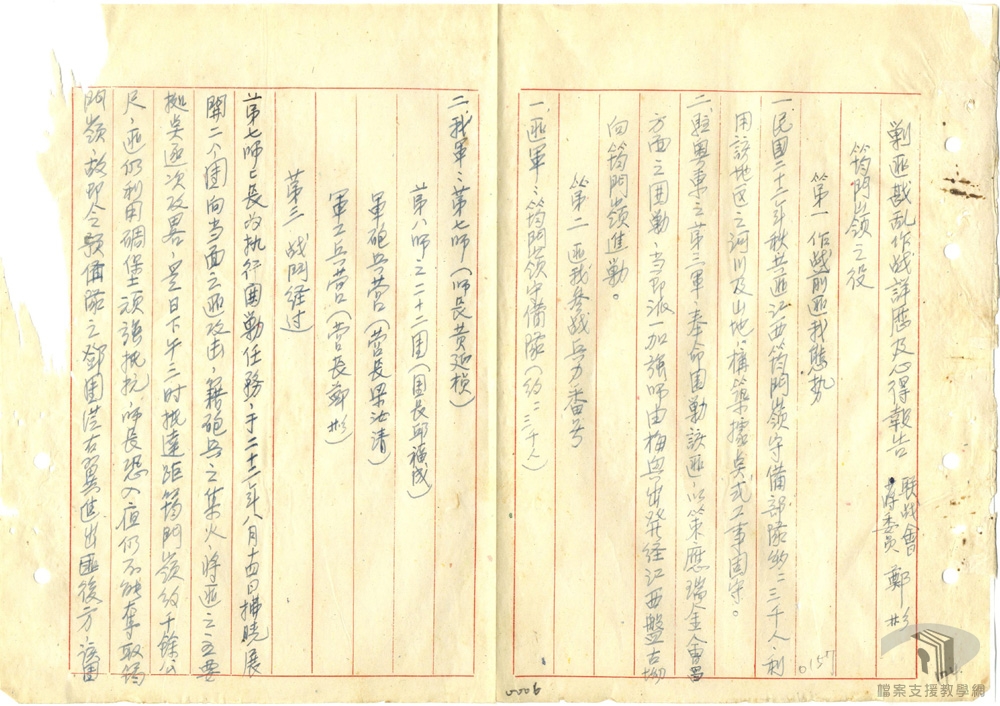 剿匪戡乱作战詳歷及心得報告 联战會
存委員 鄭彬
筠門岭之役
第一 作战前匪我態势
一、民國二十二年秋共匪江西筠門嶺守備部隊約二、三千人、利
用該地区之河川及山地、構築據点式工事固守。
二、駐粤東之第三軍奉命圍勦該匪以策應瑞金會昌
方面之圍勦、当即派一加強师由梅縣出発経江西盤古坳
向筠門嶺進勦。
第二 匪我参战兵力番号
一、匪軍：筠門嶺守備隊（約二、三千人）
二、我軍：第七师（师長黄延楨）
第八师之二十二團（團長邱福成）
軍砲兵营（营長梁汝清）
軍工兵营（营長鄭彬）
第三 战鬥経过
第七师师長为执行圍勦任務，于二十二年八月十四日拂曉展
開二个團向当面之匪攻击，藉砲兵之集火将匪之主要
拠点逐次攻畧，是日下午三时抵達距筠門嶺約千餘公
尺，匪仍利用碉堡頑強抵抗，师長恐入夜仍不能奪取筠
門嶺，故即令預備隊之鄧團從右翼進出匪後方，該團
0157
0006
檔案支援教學網